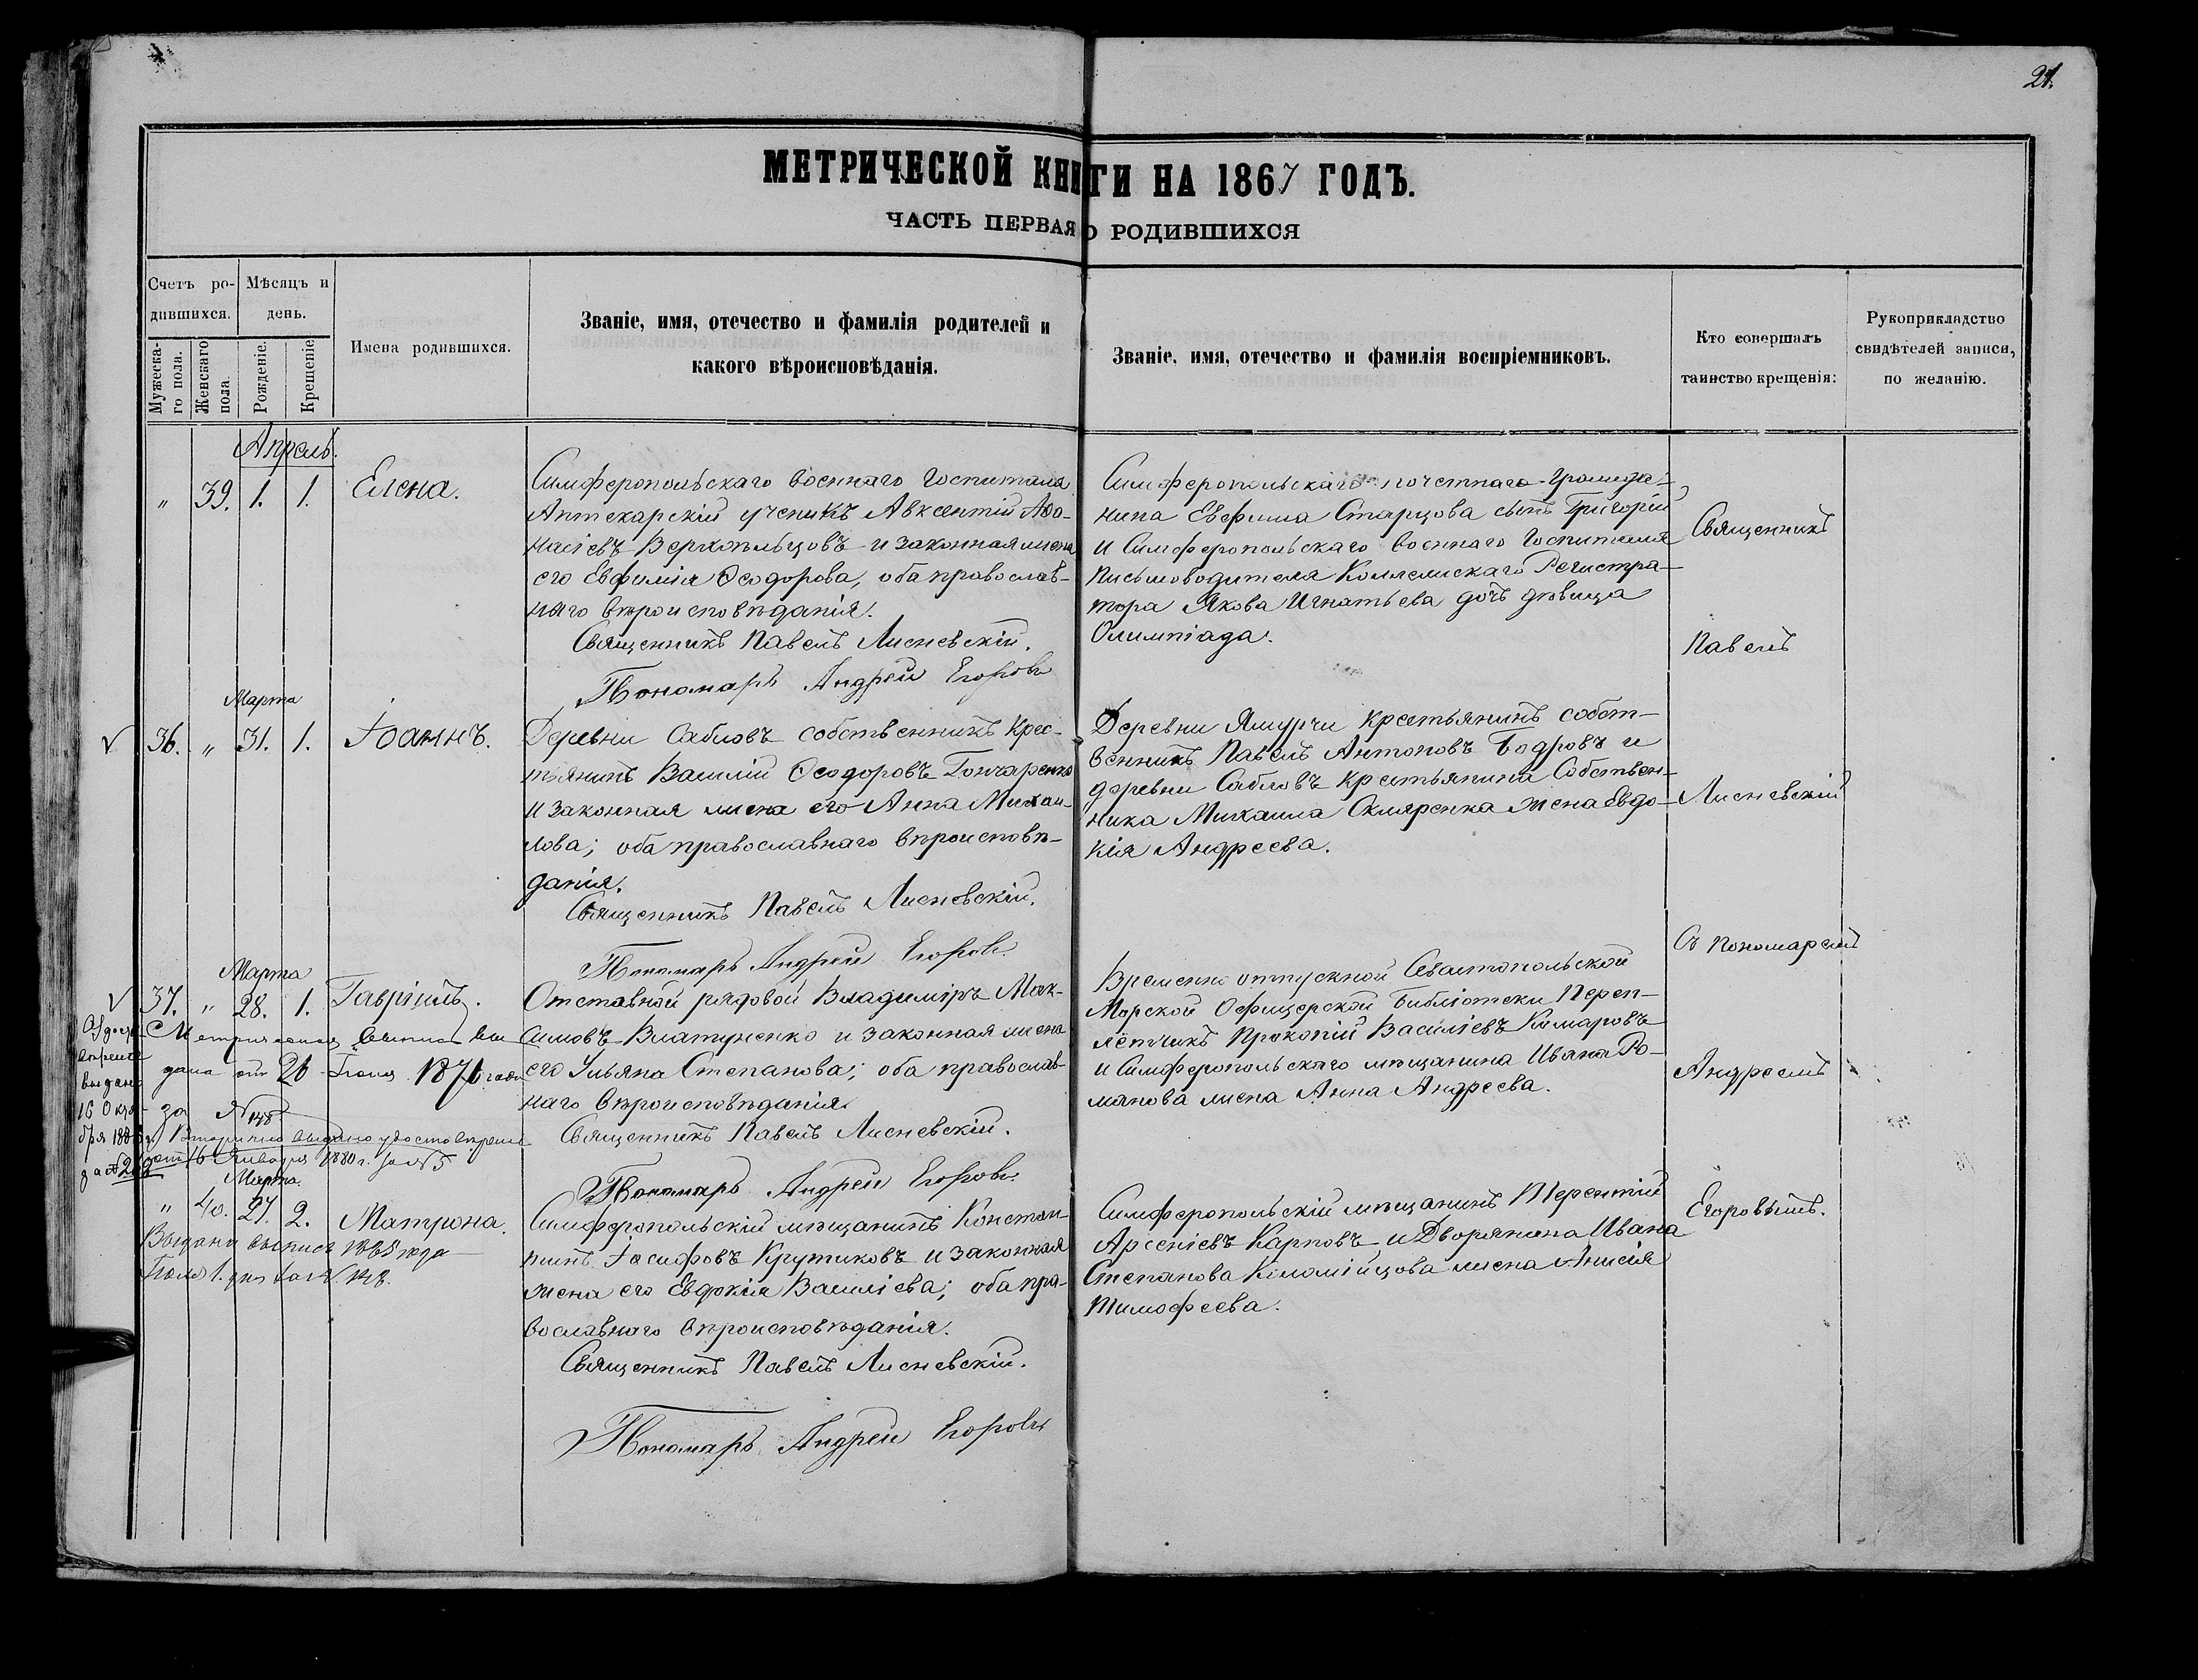 21.
МЕТРИЧЕСКОЙ КНИГИ НА 1867 ГОДЪ.
ЧАСТЬ ПЕРВАЯ О РОДИВШИХСЯ
Счетъ ро-
дившихся.
Мѣсяцъ и
день.
Мужеска-
го пола.
Женскаго
пола.
Рожденіе.
Крещеніе
Имена родившихся.
Званіе, имя, отечество и фамилія родителей и
какого вѣроисповѣданія.
Званіе, имя, отечество и фамилія воспріемниковъ.
Кто совершалъ
таинство крещенія:
Рукоприкладство
свидѣтелей записи,
по желанію.
Апрель.
" 39. 1. 1. Елена.
Симферопольскаго военнаго Госпиталя
Аптекарскій ученикъ Авксентій Аѳа-
насіевъ Верхопльцовъ и законная жена
его Евфимія Ѳеодорова, оба православ-
наго вѣроисповѣданія.
Священникъ Павелъ Лисневскій.
Пономарь Андрей Егоровъ
Симферопольскаго почетнаго гражда-
нина Евфима Старцова сынъ Григорій
и Симферопольскаго военнаго Госпиталя
письмоводителя Коллежскаго Регистра-
тора Якова Игнатьева дочь дѣвица
Олимпіада.
Марта
36. " 31. 1. Іоаннъ.
Деревни Сабловъ собственникъ крес-
тьянинъ Василій Ѳеодоровъ Гончаренко
и законная жена его Анна Михаи-
лова; оба православнаго вѣроисповѣ-
данія.
Священникъ Павелъ Лисневскій.
Пономарь Андрей Егоровъ.
Деревни Ямурчи крестьянинъ собст-
венникъ Павелъ Антоновъ Бодровъ и
деревни Сабловъ крестьянина Собствен-
ника Михаила Скляренка жена Евдо-
кія Андреева.
Марта
37. " 28. 1. Гавріилъ.
Отставной рядовой Владиміръ Мак-
симовъ Влатуненко и законная жена
его Ульяна Степанова; оба православ-
наго вѣроисповѣданія.
Священникъ Павелъ Лисневскій.
Пономарь Андрей Егоровъ.
Временно отпускной Севастопольской
Морской Офицерской Библіотеки Переп-
летчикъ Прокопій Василіевъ Комаровъ
и Симферопольскаго мѣщанина Ивана Ро-
манова жена Анна Андреева.
Метрическая выпись вы-
дана 20 Іюня 1876 года
за №
выдано
16 Октя-
бря
Вторично выдано удостоверение
16 Января 1880 г. за № 5
Марта.
" 40. 27. 2. Матрона.
Выдана выпись 1868 года
Симферопольскій мѣщанинъ Констан-
тинъ Іосифовъ Крутиковъ и законная
жена его Евдокія Василіева; оба пра-
вославнаго вѣроисповѣданія.
Священникъ Павелъ Лисневскій.
Пономарь Андрей Егоровъ
Симферопольскій мѣщанинъ Терентій
Арсеніевъ Карповъ и Дворянина Ивана
Степанова Коломійцова жена Анисія
Тимофеева.
Священникъ
Павелъ
Лисневскій
Съ пономаремъ
Андреемъ
Егоровымъ.